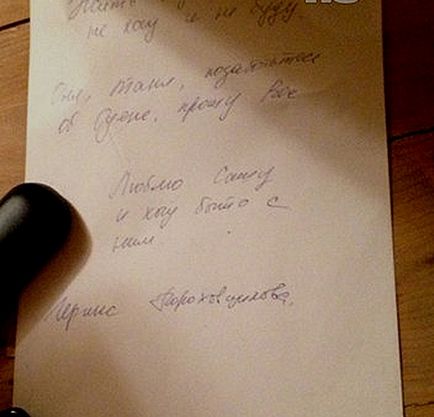 Жить
не хочу и не буду.
Оля, Таня, позаботьтесь
об прошу Вас
Люблю Сашу
и хочу быть с
ним.
Ирина Пороховщикова.